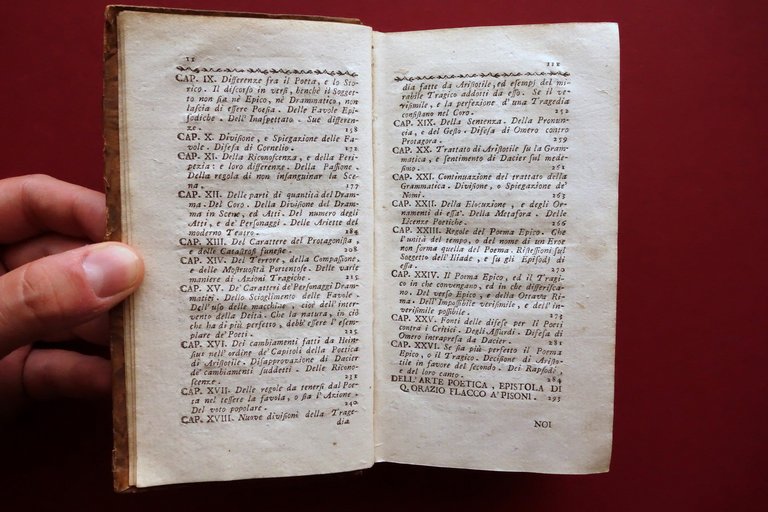 II
CAP. IX. Differenze fra il Poeta, e lo Sto-
rico. Il discorso in versi, benchè il Sogget-
to non sia nè Epico, nè Drammatico, non
lascia di essere Poesia. Delle Favole Epi-
sodiche. Dell'Inaspettato. Sue differen-
ze. 158
CAP. X. Divisione, e Spiegazione delle Fa-
vole. Difesa di Cornelio. 172
CAP. XI. Della Riconoscenza, e della Peri-
pezia: e loro differenze. Della Passione.
Della regola di non insanguinar la Sce-
na. 177
CAP. XII. Delle parti di quantità del Dram-
ma. Del Coro. Della Divisione del Dram-
ma in Scene, ed Atti. Del numero degli
Atti, e de' Personaggi. Delle Ariette del
moderno Teatro. 184
CAP. XIII. Del Carattere del Protagonista,
e delle Catastrofi funeste. 208
CAP. XIV. Del Terrore, della Compassione,
e delle Mostruosità Portentose. Delle varie
maniere di Azioni Tragiche. 215
CAP. XV. De' Caratteri de' Personaggi Dram-
matici. Dello Scioglimento delle Favole.
Dell'uso delle macchine, cioè dell'inter-
vento della Deità. Che la natura, in ciò
che ha di più perfetto, debb'essere l'esem-
plare de' Poeti. 225
CAP. XVI. Dei cambiamenti fatti da Hein-
sius nell'ordine de' Capitoli della Poetica
di Aristotile. Disapprovazione di Dacier
de' cambiamenti suddetti. Delle Ricono-
scenze. 231
CAP. XVII. Delle regole da tenersi dal Poe-
ta nel tessere la favola, o sia l'Azione.
Del voto popolare. 240
CAP. XVIII. Nuove divisioni della Trage-
dia
III
dia fatte da Aristotile, ed esempj del mi-
rabile Tragico addotti da esso. Se il ve-
risimile, e la perfezione d'una Tragedia
consistano nel Coro. 252
CAP. XIX. Della Sentenza. Della Pronun-
cia, e del Gesto. Difesa di Omero contro
Protagora. 259
CAP. XX. Trattato di Aristotile su la Gram-
matica, e sentimento di Dacier sul mede-
simo. 261
CAP. XXI. Continuazione del trattato della
Grammatica. Divisione, o Spiegazione de'
Nomi. 263
CAP. XXII. Della Elocuzione, e degli Or-
namenti di essa. Della Metafora. Delle
Licenze Poetiche. 266
CAP. XXIII. Regole del Poema Epico. Che
l'unità del tempo, o del nome di un Eroe
non forma quella del Poema. Riflessioni sul
Soggetto dell'Iliade, e su gli Episodj di
essa. 270
CAP. XXIV. Il Poema Epico, ed il Tragi-
co in che convengano, ed in che differisca-
no. Del verso Epico, e della Ottava Ri-
ma. Dell'Impossibile verisimile, e dell'in-
verisimile possibile. 273
CAP. XXV. Fonti delle difese per li Poeti
contra i Critici. Degli Assurdi. Difesa di
Omero intrapresa da Dacier. 281
CAP. XXVI. Se sia più perfetto il Poema
Epico, o il Tragico. Decisione di Aristo-
tile in favore del secondo. Dei Rapsodi,
e del loro canto. 284
DELL'ARTE POETICA, EPISTOLA DI
Q. ORAZIO FLACCO A' PISONI. 295
NOI